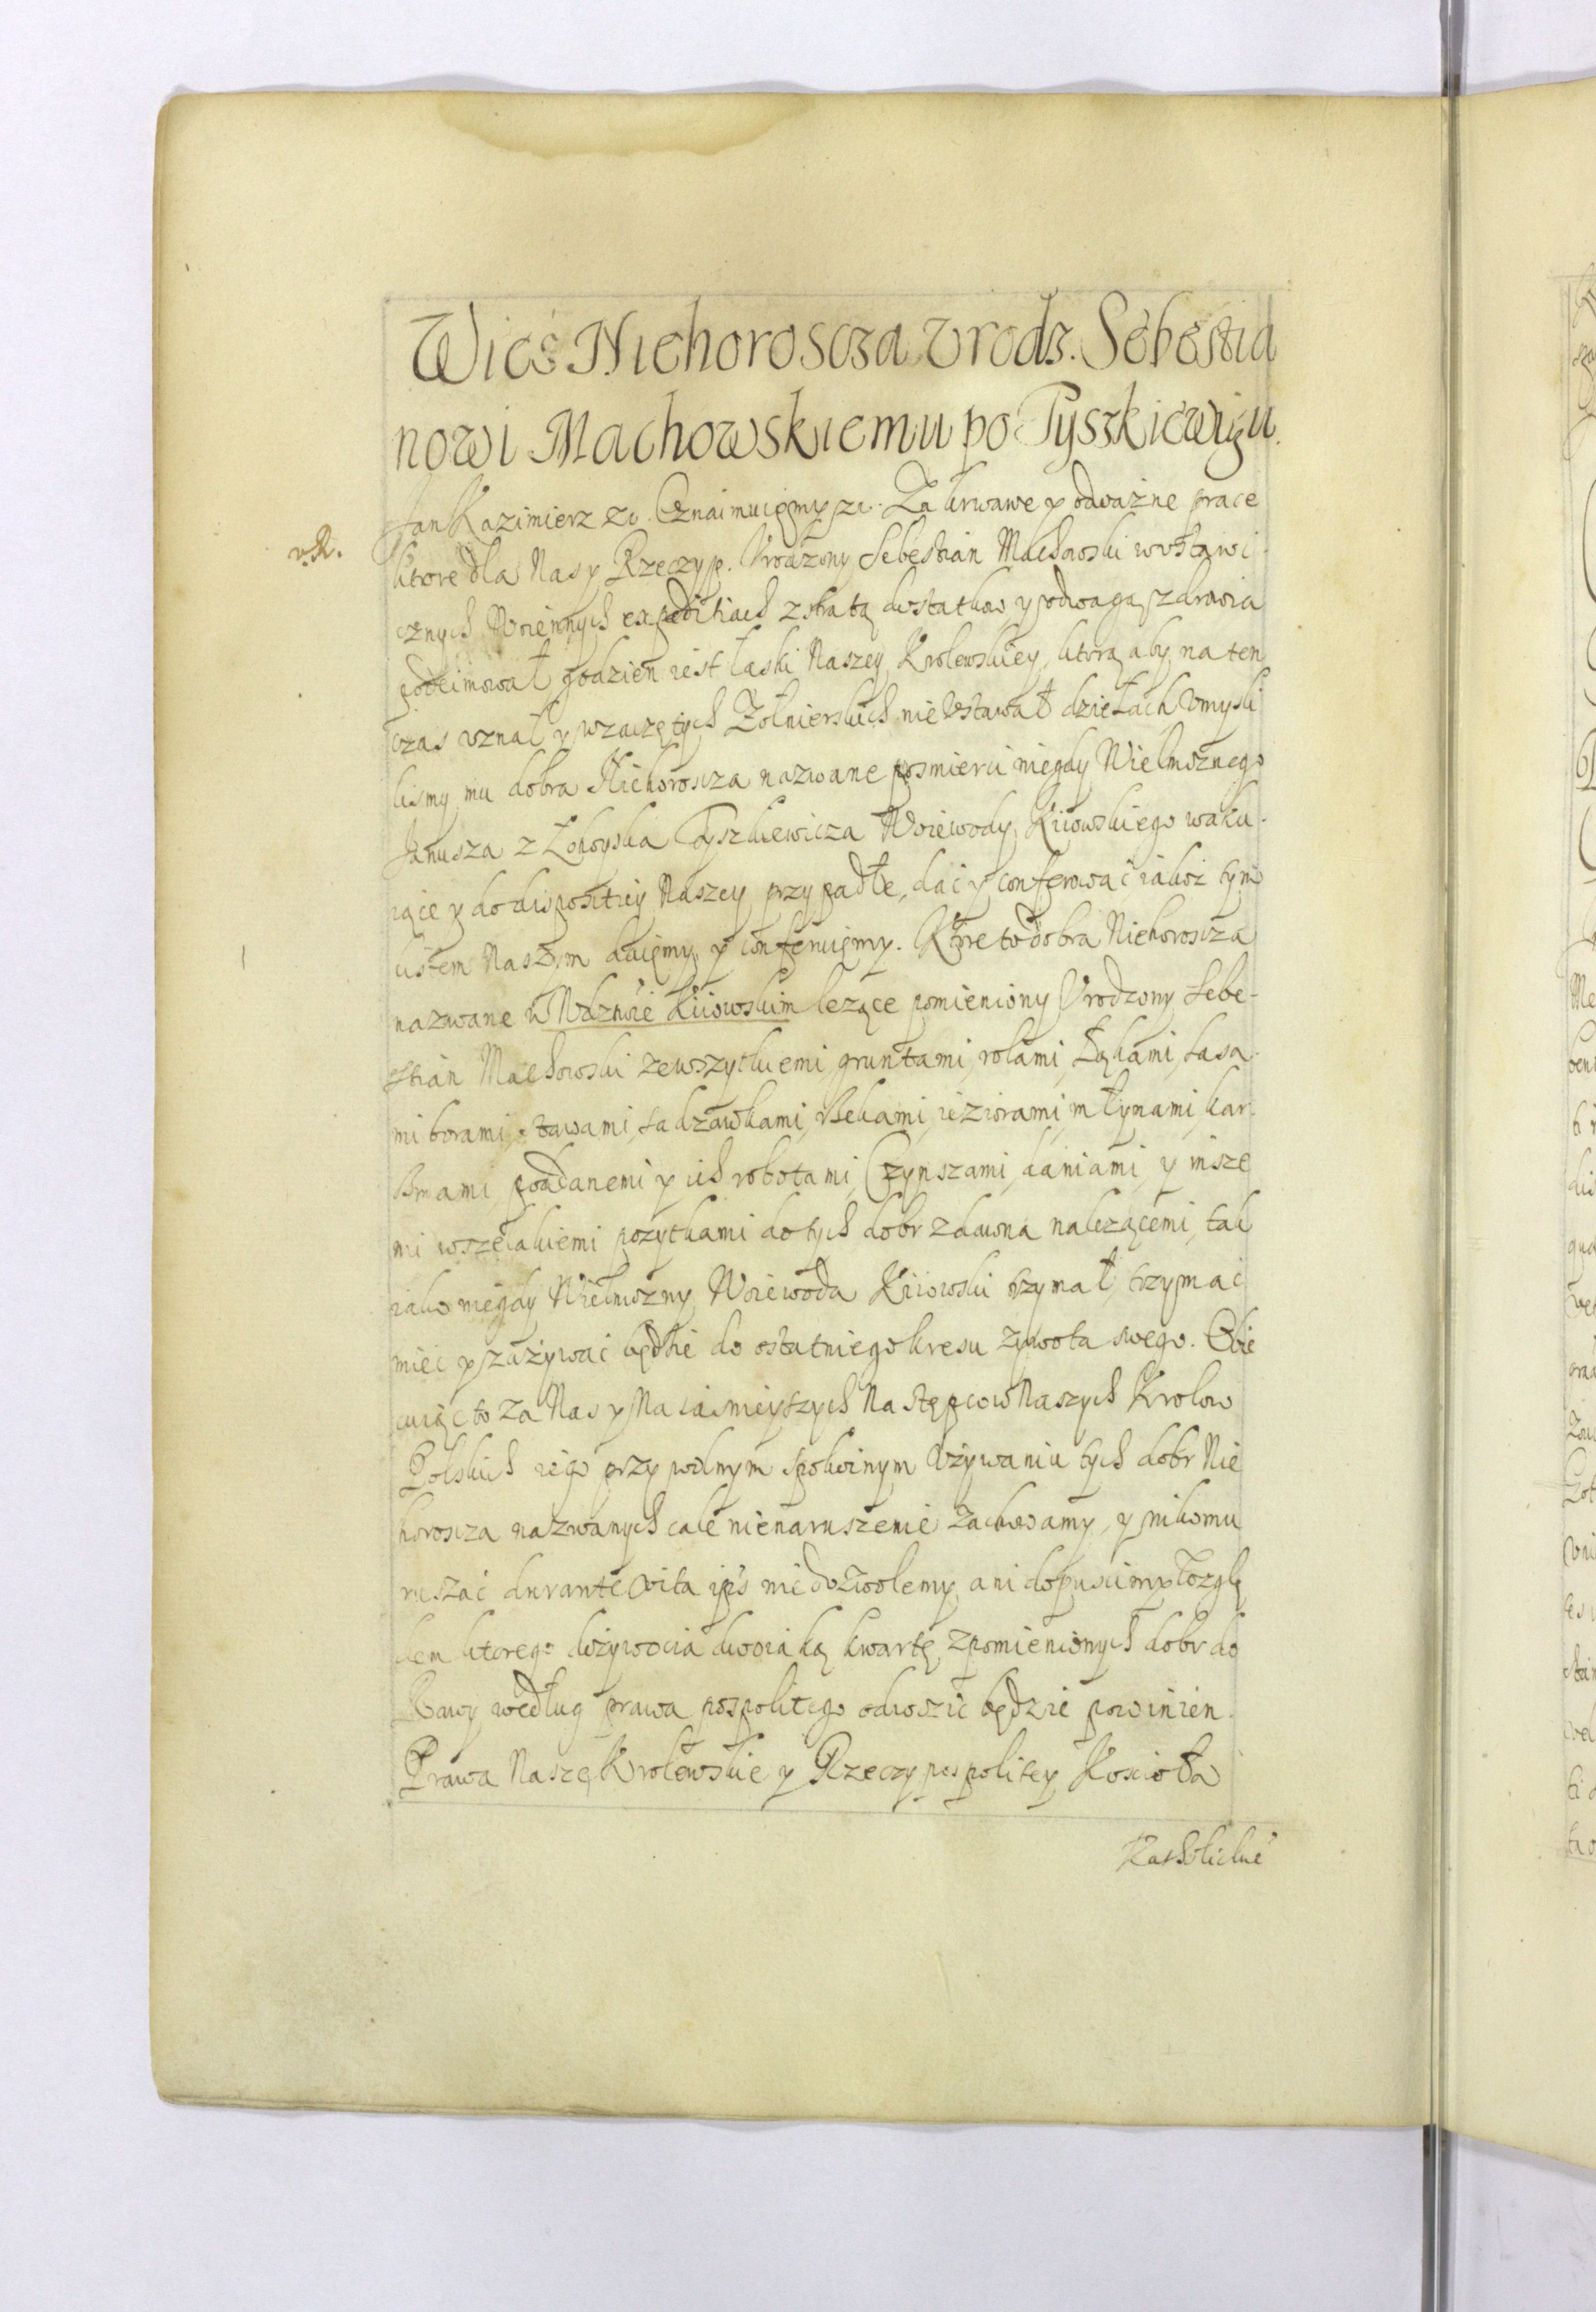 Wieś Niehoroscza Urodz. Sebestia
nowi Machowskiemu po Tyszkiewiczu.
Jan Kazimierz etc. Oznaimuięmy etc. Za krwawe y odważne prace
ktore dla Nas y Rzeczyp. Urodzony Sebestian Machowski w ustawi-
cznych Woiennych expeditiach z stratą dostatkow y odwagą zdrowia
podeimował godzien iest łaski Naszey Krolewskiey, ktorą aby na ten
czas uznał y w zaczętych Żołnierskich nie ustawał dziełach Umysli
lismy mu dobra Niehoroscza nazwane po smierci niegdy Wielmożnego
Janusza z Łohoyska Tyszkiewicza Woiewody Kiiowskiego waku-
iące y do dispositiey Naszey przypadłe, dać y conferować iakoż tym
listem Naszym daięmy y conferuięmy. Ktore to dobra Niehoroscza
nazwane w Wdztwie Kiiowskim lezące pomieniony Urodzony Sebe-
stian Machowski ze wszytkiemi gruntami, rolami, Łąkami, Lasa-
mi borami, stawami, sadzawkami, Rzekami, ieziorami, młynami, kar-
czmami, poddanemi y ich robotami, Czynszami, daniami, y insze
mi wszelakiemi pozytkami do tych dobr zdawna nalezącemi, tak
iako niegdy Wielmozny Woiewoda Kiiowski trzymał, trzymać
mieć y zażywać będzie do ostatniego kresu zywota swego. Obie
cuiąc to za Nas y Naiasnieyszych Następcow Naszych Krolow
Polskich iego przy wolnym spokoinym Używaniu tych dobr Nie
horoscza nazwanych cale nienaruszenie zachowamy, y nikomu
ruszać durante vita ips nie dozwolemy ani dopuscimy Wzglę
dem ktorego dożywocia dwoiaką kwartę z pomienionych dobr do
Rawy według prawa pospolitego odwozić będzie powinien.
Prawa Nasze Krolewskie y Rzeczypospolitey Kosciołа
Katholickie